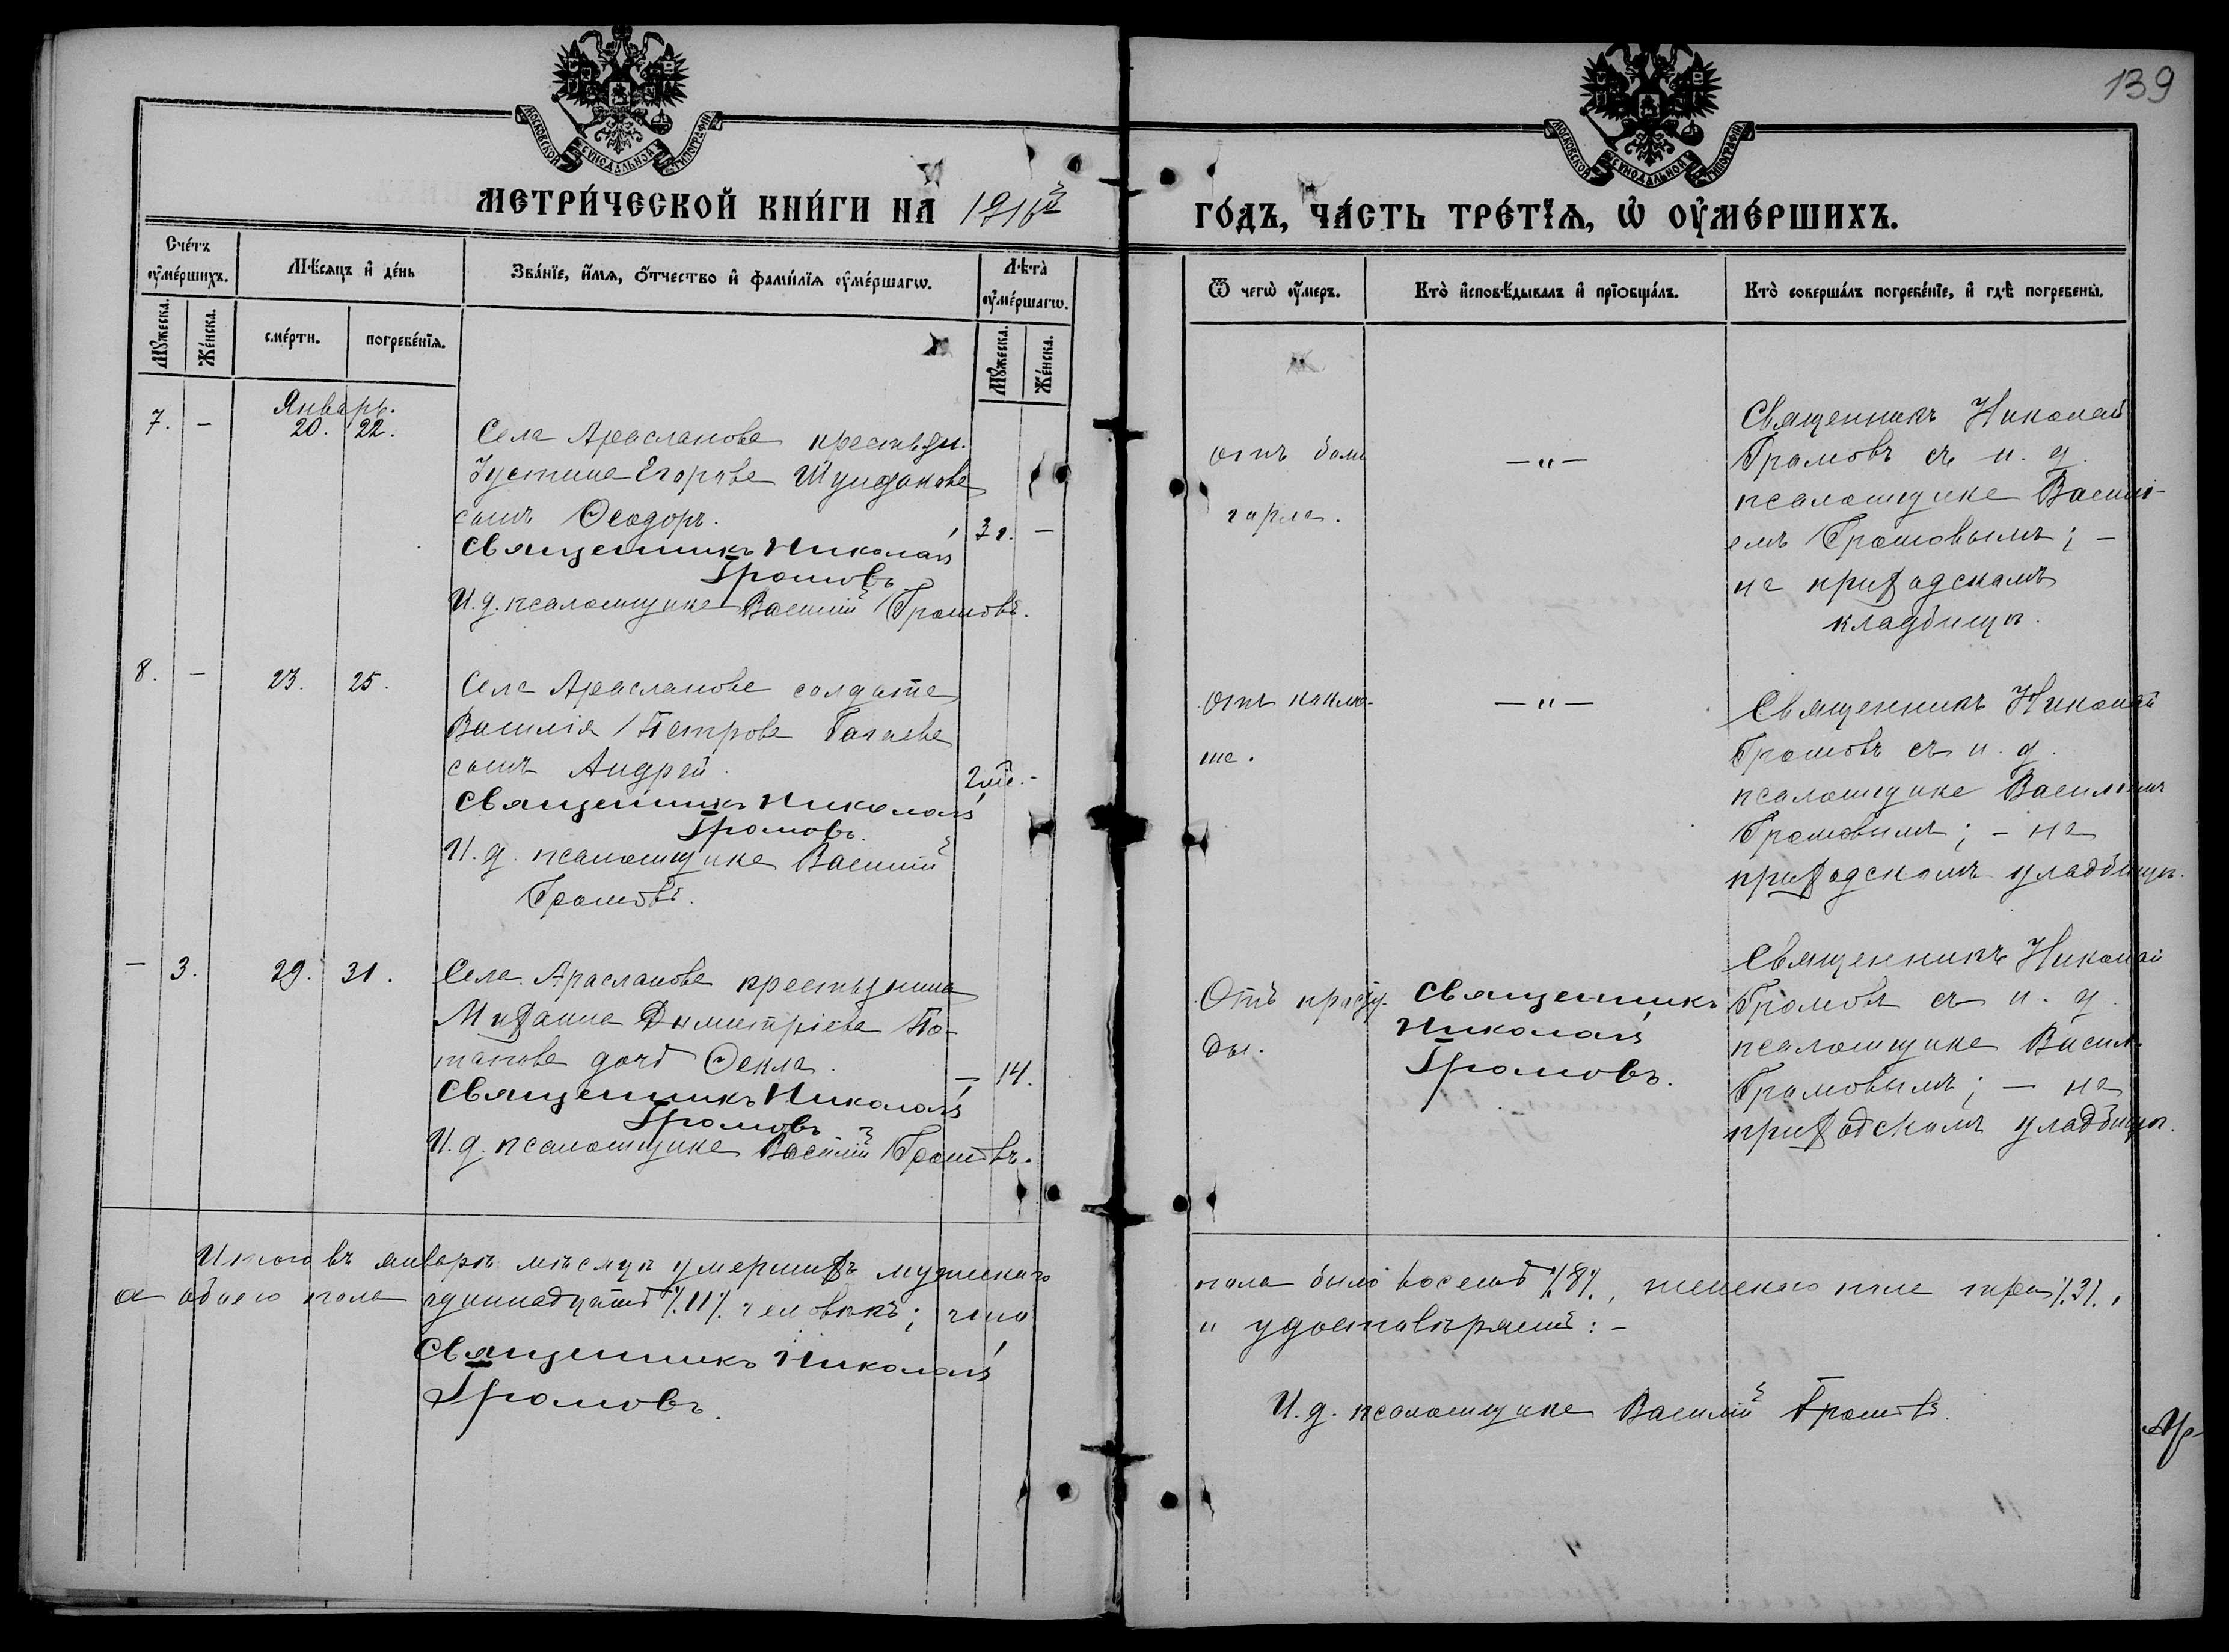 139
МОСКОВСКОЙ СѴНОДАЛЬНОЙ ТИПОГРАФІИ
МОСКОВСКОЙ СѴНОДАЛЬНОЙ ТИПОГРАФІИ
МЕТРИ́ЧЕСКОЙ КНИ́ГИ НА 1916й ГО́ДЪ, ЧА́СТЬ ТРЕ́ТІѦ, Ѡ҆ ОУ҆МЕ́РШИХЪ.
Сче́тъ оу҆ме́ршихъ.
Мѣ́сѧцъ и҆ де́нь
Зва́нїе, и҆́мѧ, ѻ҆́тчество и҆ фами́лїѧ оу҆ме́ршагѡ.
Лѣ̀та оу҆ме́ршагѡ.
Ѿ чегѡ̀ оу҆́меръ.
Кто̀ и҆сповѣ́дывалъ и҆ прїѡбща́лъ.
Кто̀ соверша́лъ погребе́нїе, и҆ гдѣ̀ погребены̀.
Мꙋ́жеска.
Же́нска.
сме́рти.
погребе́нїѧ.
Мꙋ́жеска.
Же́нска.
Январь.
7. - 20. 22.
Села Арасланова крестьян.
Іустина Егорова Шундакова
сынъ Ѳеодоръ.
3 г. -
Священникъ Николай
Громовъ
И. д. псаломщика Василій Громовъ.
отъ боли
горла.
- " -
Священникъ Николай
Громовъ съ и. д.
псаломщика Василі-
емъ Громовымъ; -
на приходскомъ
кладбищѣ.
8. - 23. 25.
Села Арасланова солдата
Василія Петрова
сынъ Андрей.
2 мѣс. -
Священникъ Николай
Громовъ.
И. д. псаломщика Василій
Громовъ.
отъ коклю-
ша.
- " -
Священникъ Николай
Громовъ съ и. д.
псаломщика Василіемъ
Громовымъ; - на
приходскомъ кладбищѣ.
- 3. 29. 31.
Села Арасланова крестьянина
Михаила Димитріева По-
тапова дочь Ѳекла.
- 14.
Священникъ Николай
Громовъ
И. д. псаломщика Василій Громовъ.
Отъ просту-
ды.
Священникъ
Николай
Громовъ.
Священникъ Николай
Громовъ съ и. д.
псаломщика Васил.
Громовымъ; - на
приходскомъ кладбищѣ.
Итого въ январѣ мѣсяцѣ умершихъ мужескаго пола было восемь /.8/., женскаго пола три /.3/.,
а обоего пола одиннадцать /.11/. человѣкъ; что и удостовѣряемъ: -
Священникъ Николай
Громовъ.
И. д. псаломщика Василій Громовъ.